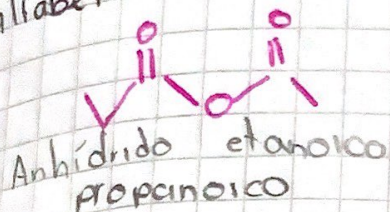 O O
O
Anhídrido etanoico
propanoico